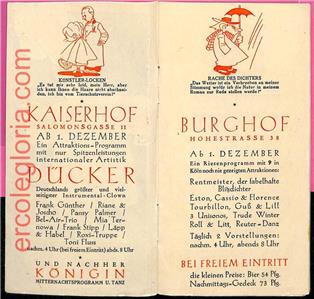 KÜNSTLER-LOCKEN
"Es tut mir sehr leid, mein Herr, aber
ich kann Ihnen die Haare nicht abschnei-
den, ich bin vom Tierschutzverein!"
KAISERHOF
SALOMONSGASSE 11
AB 1. DEZEMBER
Ein Attraktions-Programm
mit nur Spitzenleistungen
internationaler Artistik
DÜCKER
Deutschlands größter und viel-
seitigster Instrumental-Clown
Frank Günther / Riane &
Joscho / Pansy Palmer /
Bel-Air-Trio / Mia Ter-
nowa / Frank Stipp / Läpp
& Habel / Roxi-Truppe /
Toni Fluss
nachm. 4 Uhr (bei freiem Eintritt) abds. 8 Uhr
UND NACHHER
KÖNIGIN
MITTERNACHTSPROGRAMM U. TANZ
RACHE DES DICHTERS
"Das Wetter ist ein Vorboten an meiner
Stimmung wofür ich die Natur in meinem
Roman zur Rede stellen werde!"
BURGHOF
HOHESTRASSE 38
Ab 1. DEZEMBER
Ein Riesenprogramm mit 9 in
Köln noch nie gezeigten Attraktionen:
Rentmeister, der fabelhafte
Blitzdichter
Eston, Cassio & Florence
Tourbillon, Guß & Lill
3 Unisonos, Trude Winter
Roll & Litt, Reuter-Danz
Täglich 2 Vorstellungen:
nachm. 4 Uhr, abends 8 Uhr
BEI FREIEM EINTRITT
die kleinen Preise: Bier 54 Pfg.
Nachmittags-Gedeck 73 Pfg.
ercolegloria.com